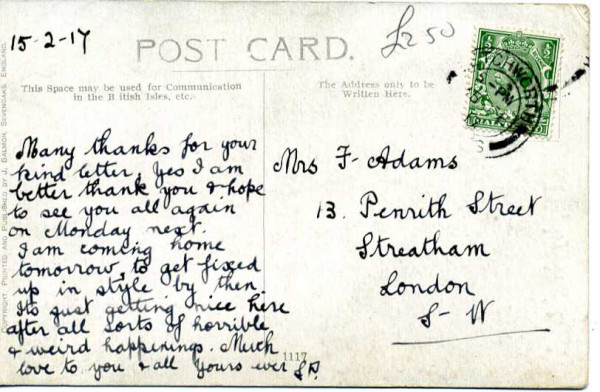 15-2-17
£2.50
POST CARD.
This Space may be used for Communication
in the B itish Isles, etc.
The Address only to be
Written Here.
Many thanks for your
kind letter, yes I am
better thank you & hope
to see you all again
on Monday next.
I am coming home
tomorrow, to get fixed
up in style by then
Its just getting nice here
after all sorts of horrible
& weird happenings. Much
love to you & all yours ever
Mrs F. Adams
13. Penrith Street
Streatham
London
S-W
1117
COPYRIGHT. PRINTED AND PUBLISHED BY J. SALMON, SEVENOAKS, ENGLAND.